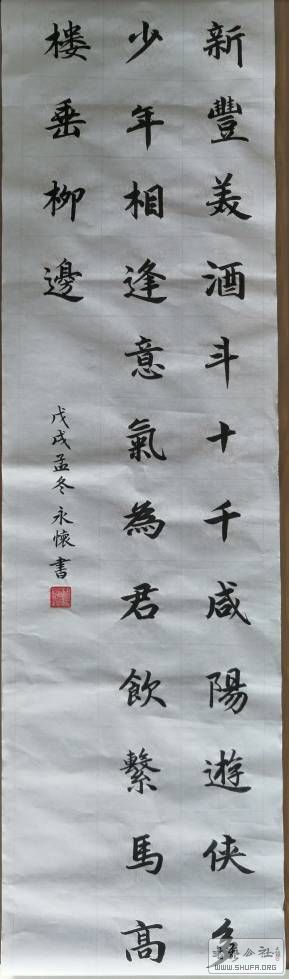 新豐美酒斗十千咸陽遊俠多
少年相逢意氣為君飲繫馬高
樓垂柳邊
戊戌孟冬永懷書
WWW.SHUFA.ORG